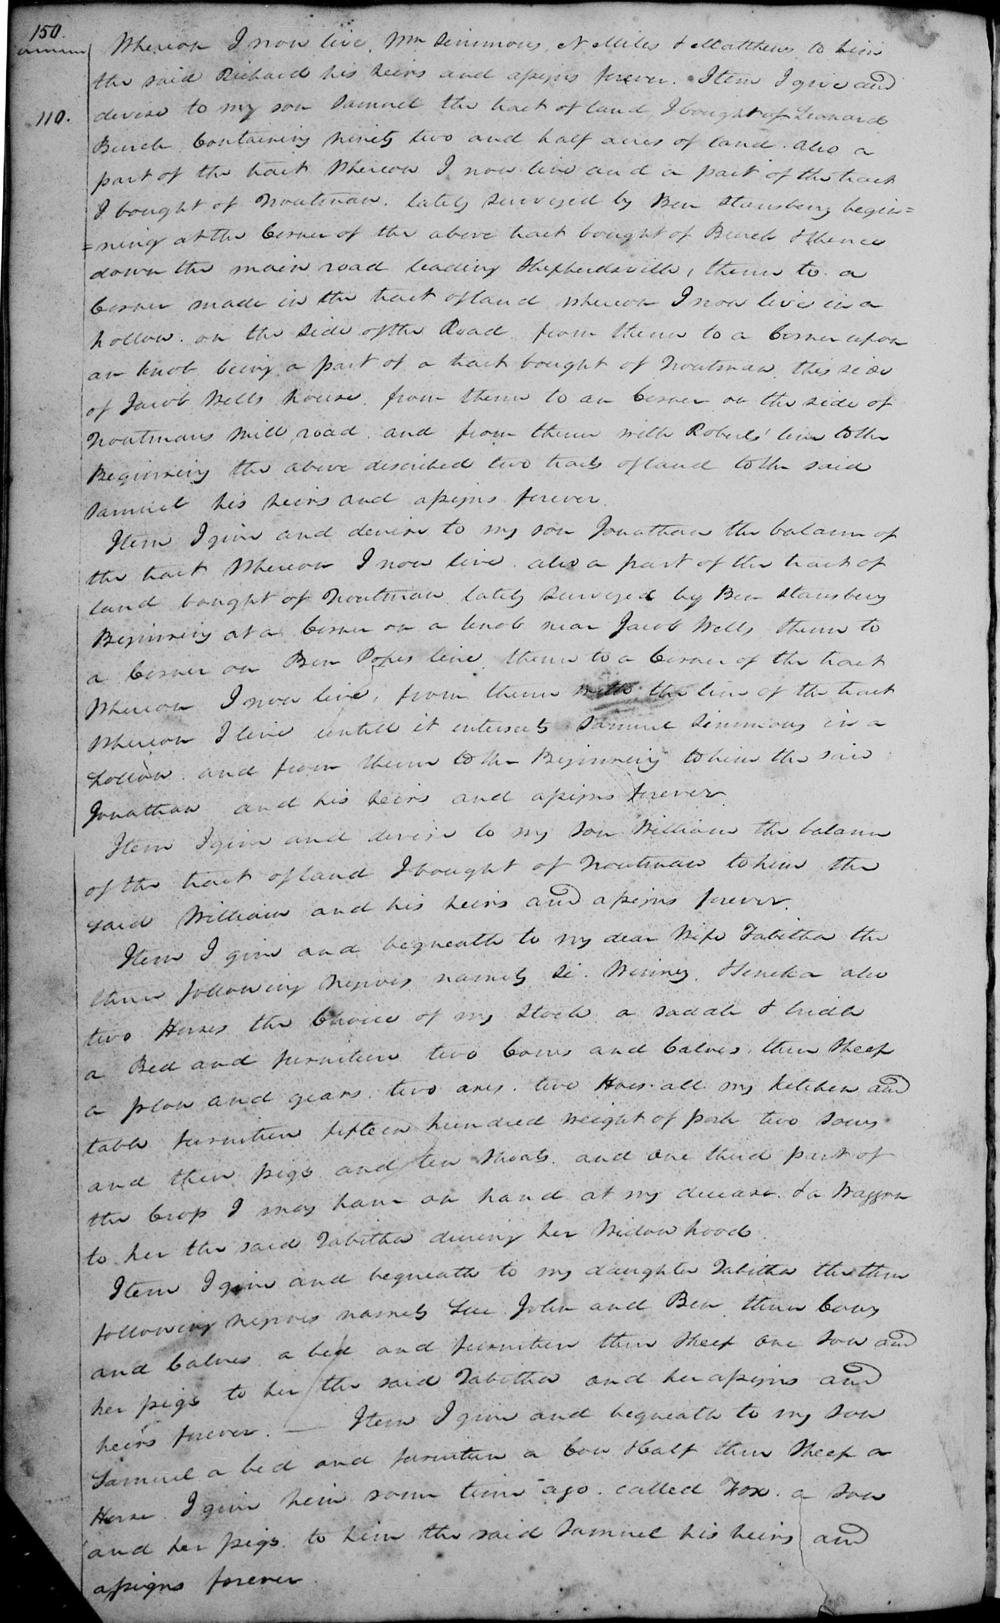 150.
Whereon I now live, Wm Simmons, N Miles & Matthews to him
the said Richard his heirs and assigns forever. Item I give and
110.
devise to my son Samuel the tract of land I bought of Leonard
Burch Containing ninety two and half acres of land. also a
part of the tract Whereon I now live and a part of the tract
I bought of Troutman. lately surveyed by Ben Stansbery begin=
=ning at the Corner of the above tract bought of Burch & thence
down the main road leading Shepherdsville, thence to a
Corner made in the tract of land whereon I now live in a
hollow. on the side of the Road from thence to a Corner upon
an knob being a part of a tract bought of Troutman this side
of Jacob Wells house. from thence to an Corner on the side of
Troutmans Mill road. and from thence with Roberts' line to the
Beginning the above described two tracts of land to the said
Samuel his heirs and assigns forever.
Item I give and devise to my son Jonathan the balance of
the tract Whereon I now live. also a part of the tract of
land bought of Troutman lately surveyed by Ben Stansbery
Beginning at a Corner on a knob near Jacob Wells thence to
a Corner on Ben Popes line thence to a Corner of the tract
Whereon I now live, from thence with the line of the tract
Whereon I live untill it intersects Samuel Simmons in a
hollow. and from thence to the Beginning to him the said
Jonathan and his heirs and assigns forever
Item I give and devise to my Son William the balance
of the tract of land I bought of Troutman to him the
said William and his heirs and assigns forever.
Item I give and bequeath to my dear Wife Tabitha the
three following Negroes namely Si. Winney, & Seneka also
two Horses the Choice of my Stock a saddle & bridle
a Bed and furniture two Cows and Calves, three Sheep
a plow and gears. two axes. two Hoes. all my kitchen and
table furniture fifteen hundred weight of pork two sows
and their pigs and ten Shoats. and one third part of
the Crop I may have on hand at my decease. & a Waggon
to her the said Tabitha during her Widowhood.
Item I give and bequeath to my daughter Tabitha the three
following Negroes namely Lue John and Ben three Cows
and Calves a bed and furniture three Sheep one Sow and
her pigs to her the said Tabitha and her assigns and
heirs forever. — Item I give and bequeath to my Son
Samuel a bed and furniture a Cow & Calf three Sheep a
Horse I give him some time ago. called Fox. a Sow
and her pigs. to him the said Samuel his heirs and
assigns forever